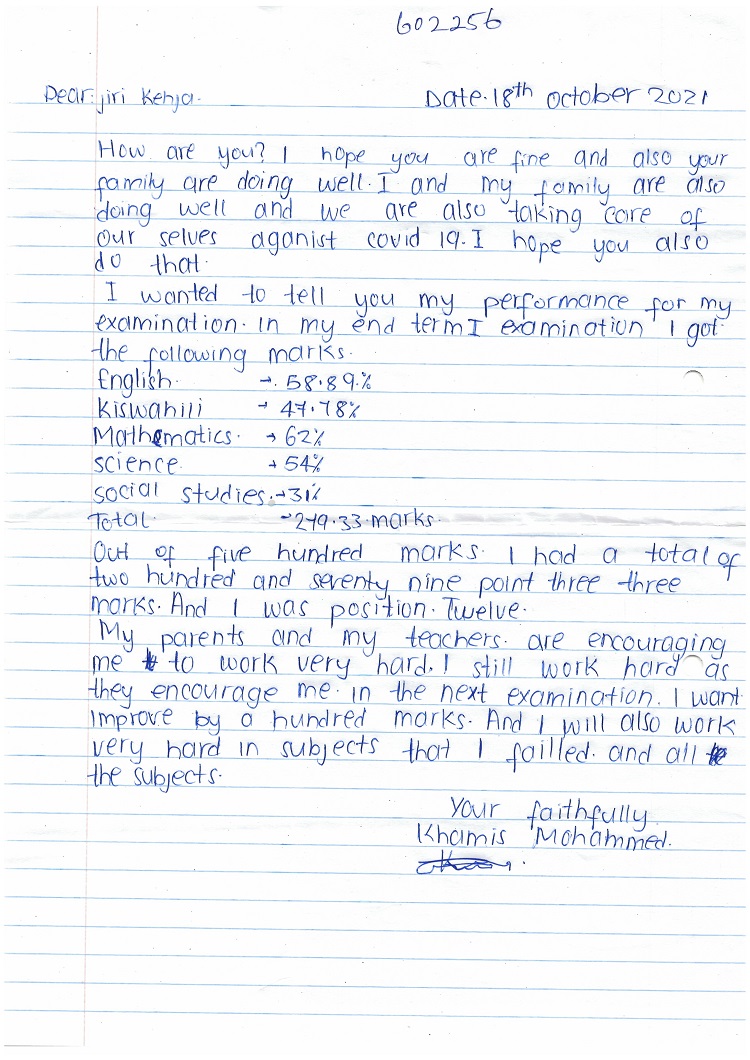 602256
Dear: jiri Kehja. Date. 18th October 2021
How are you? I hope you are fine and also your
family are doing well. I and my family are also
doing well and we are also taking care of
Our selves aganist covid 19. I hope you also
do that.
I wanted to tell you my performance for my
examination. in my end term I examination I got
the following marks.
English. → 58.89.%
Kiswahili → 47.78%
Mathematics. → 62%
science. → 54%
social studies. → 31%
Total. → 279.33 marks.
Out of five hundred marks. I had a total of
two hundred and seventy nine point three three
marks. And I was position. Twelve.
My parents and my teachers. are encouraging
me to work very hard. I still work hard as
they encourage me. in the next examination. I want
improve by a hundred marks. And I will also work
very hard in subjects that I failled. and all
the subjects.
Your faithfully
Khamis Mohammed.